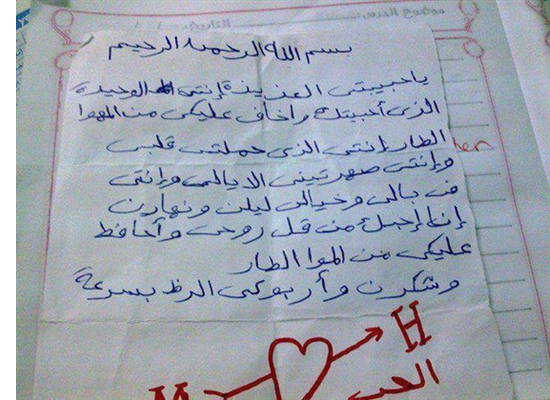 بسم الله الرحمن الرحيم
ياحبيبتي العزيزة إنتي الوحيدة
الذي أحببتك واخاف عليكي من الهوا
الطار إنتي الذي حملتي قلبي
وإنتي صهرتيني الايالي وإنتي
في بالي وخيالي ليلن ونهارن
إنا إحبك من كل روحي وأحافظ
عليكي من الهوا الطار
وشكرن وأربو كي الرظ بسرعة
H
M
الحب